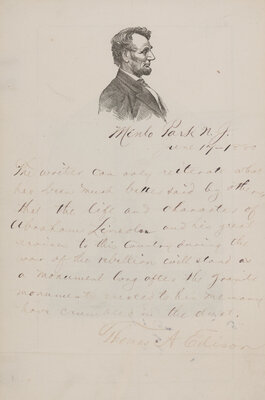 Menlo Park N.J.
June 17-1880
The writer can only reiterate what
has been much better said by others
that the life and character of
Abraham Lincoln and his great
services to this country during the
war of the rebellion will stand as
a monument long after the granite
monuments erected to his memory
have crumbled in the dust.
Thomas A Edison